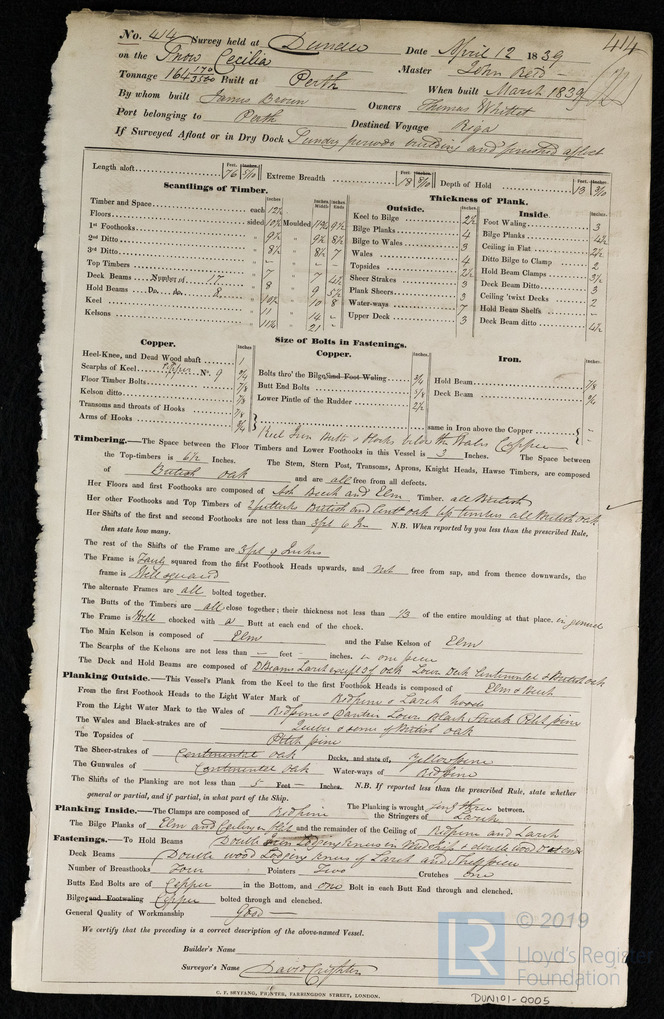 No. 414 Survey held at Dundee Date April 12 1839 414
on the Snow Cecilia Master John Reid
Tonnage 164 170/3500 Built at Perth When built March 1839
By whom built James Brown Owners Thomas Whittet
Port belonging to Perth Destined Voyage Riga
If Surveyed Afloat or in Dry Dock Sundry periods building and finished afloat
Length aloft Feet. 76 Inches. 5/10 Extreme Breadth Feet. 18 Inches. 8/10 Depth of Hold Feet. 13 Inches. 3/10
Scantlings of Timber. Thickness of Plank.
Inches Inches Middle Inches Ends Outside. Inches. Inside. Inches.
Timber and Space each 12½ Keel to Bilge 2½ Foot Waling 3
Floors sided 10½ Moulded 11½ 9½ Bilge Planks 4 Bilge Planks 4½
1st Foothooks " 9½ " 9½ 8½ Bilge to Wales 3 Ceiling in Flat 2½
2nd Ditto " 8½ " 8½ 7 Wales 4 Ditto Bilge to Clamp 2
3rd Ditto " - " - - Topsides 2½ Hold Beam Clamps 3½
Top Timbers " 7 " 7 4½ Sheer Strakes 3 Deck Beam Ditto 3
Deck Beams Number of 17 " 8 " 9 5½ Plank Sheers 3 Ceiling 'twixt Decks 2
Hold Beams Do. do. 8 " 10½ " 10 8 Water-ways 7 Hold Beam Shelfs -
Keel " 11 " 14 - Upper Deck 3 Deck Beam ditto 4½
Kelsons " 11½ " 21 -
Size of Bolts in Fastenings.
Copper. Inches Copper. Inches Iron. Inches.
Heel-Knee, and Dead Wood abaft 1 Bolts thro' the Bilge and Foot Waling 3/4 Hold Beam 7/8
Scarphs of Keel Copper No. 9 Butt End Bolts 5/8 Deck Beam 3/4
Floor Timber Bolts 7/8 Lower Pintle of the Rudder 2½
Kelson ditto 7/8
Transoms and throats of Hooks 7/8 same in Iron above the Copper -
Arms of Hooks 3/4 -
below the Wales Copper
Timbering.—The Space between the Floor Timbers and Lower Foothooks in this Vessel is 3 Inches. The Space between
the Top-timbers is 6½ Inches. The Stem, Stern Post, Transoms, Aprons, Knight Heads, Hawse Timbers, are composed
of British oak and are all free from all defects.
Her Floors and first Foothooks are composed of Ash Beech and Elm Timber. all British
Her other Foothooks and Top Timbers of 2 futtocks British and Cont oak top timbers all British Oak
Her Shifts of the first and second Foothooks are not less than 3 ft 6 In N.B. When reported by you less than the prescribed Rule,
then state how many.
The rest of the Shifts of the Frame are 3 ft 9 Inches
The Frame is Fairly squared from the first Foothook Heads upwards, and not free from sap, and from thence downwards, the
frame is Well squared
The alternate Frames are all bolted together.
The Butts of the Timbers are all close together; their thickness not less than 1/3 of the entire moulding at that place. in general
The Frame is Well chocked with a Butt at each end of the chock.
The Main Kelson is composed of Elm and the False Kelson of Elm
The Scarphs of the Kelsons are not less than — feet — inches. in one piece
The Deck and Hold Beams are composed of D Beams Larch except 3 of oak Lower Deck Continental & British oak
Planking Outside.—This Vessel's Plank from the Keel to the first Foothook Heads is composed of Elm & Beech
From the first Foothook Heads to the Light Water Mark of Redpine & Larch hoods
From the Light Water Mark to the Wales of Redpine & Lower Black Streak Pitch pine
The Wales and Black-strakes are of of British oak
The Topsides of Pitch pine
The Sheer-strakes of Continental oak Decks, and state of, Yellow pine
The Gunwales of Continental oak Water-ways of Red pine
The Shifts of the Planking are not less than 5 Feet — Inches. N.B. If reported less than the prescribed Rule, state whether
general or partial, and if partial, in what part of the Ship.
Planking Inside.—The Clamps are composed of Redpine The Planking is wrought long three between.
the Stringers of Larch
The Bilge Planks of Elm and Ceiling in Flat and the remainder of the Ceiling of Redpine and Larch
Fastenings.—To Hold Beams Double Iron Lodging knees in Midship & double wood at ends
Deck Beams Double wood Lodging knees of Larch and
Number of Breasthooks Four Pointers Two Crutches one
Butts End Bolts are of Copper in the Bottom, and one Bolt in each Butt End through and clenched.
Bilge and Footwaling Copper bolted through and clenched.
General Quality of Workmanship Good —
We certify that the preceding is a correct description of the above-named Vessel.
Builder's Name
Surveyor's Name David Crighton
C. F. SEYFANG, PRINTER, FARRINGDON STREET, LONDON.
DUN101-0005
LR
© 2019
Lloyd's Register
Foundation